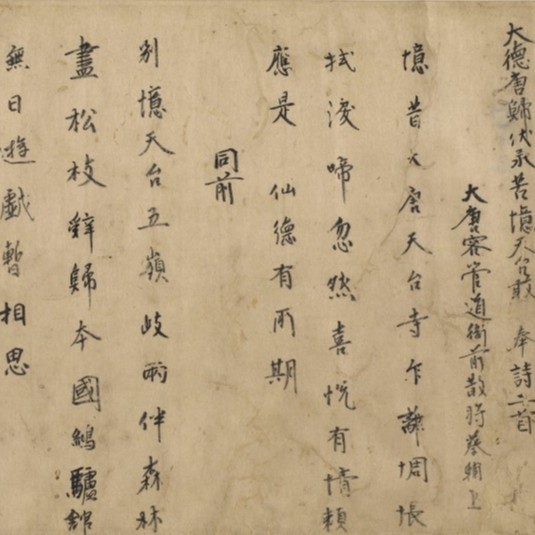 大德唐歸伏承苦憶天台敢奉詩二首
大唐容管道衙前散將蔡輔上
憶昔大唐天台寺乍離惆悵
拭淚啼忽然喜悅有情賴
應是仙德有雨期
同前
別憶天台五嶺歧兩伴森林
盡松枝辭歸本國鴻驢館
無日遊戲暫相思